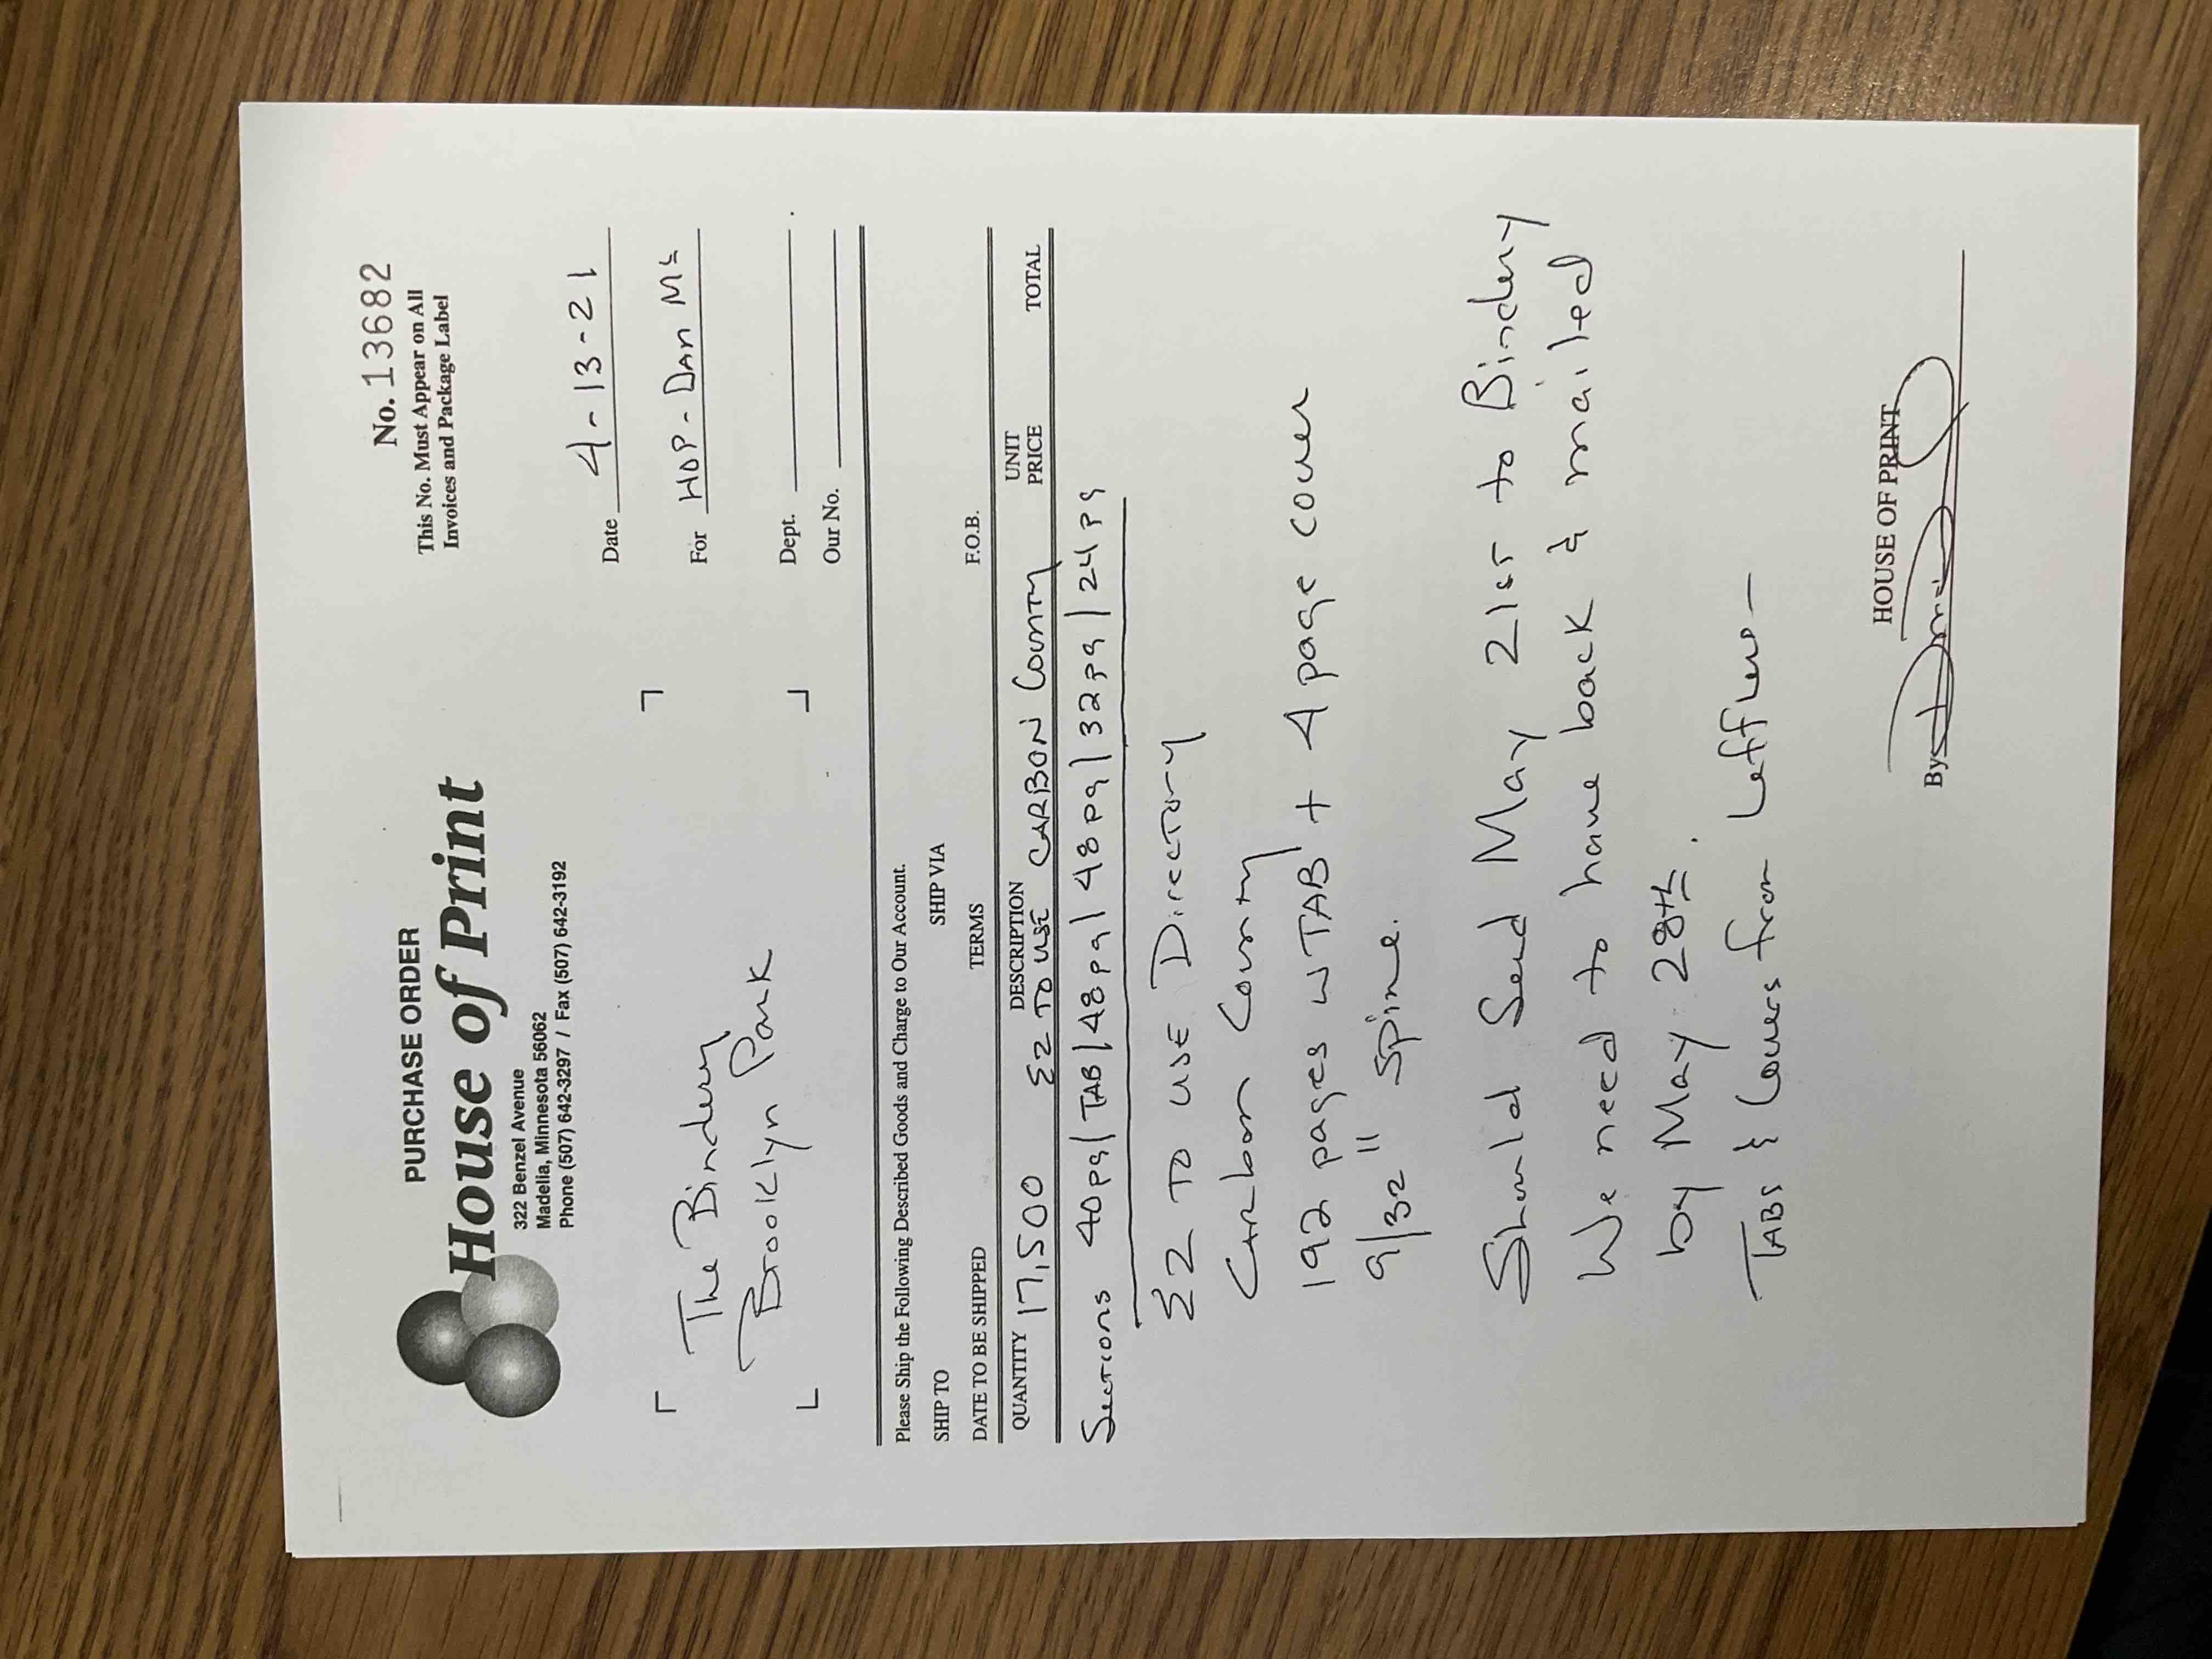 PURCHASE ORDER
House of Print
322 Benzel Avenue
Madelia, Minnesota 56062
Phone (507) 642-3297 / Fax (507) 642-3192
No. 13682
This No. Must Appear on All
Invoices and Package Label
The Bindery
Brooklyn Park
Date 4-13-21
For HOP - DAN M
Dept.
Our No.
Please Ship the Following Described Goods and Charge to Our Account.
SHIP TO SHIP VIA
DATE TO BE SHIPPED TERMS F.O.B.
QUANTITY DESCRIPTION UNIT PRICE TOTAL
17,500 EZ TO USE CARBON COUNTY
Sections 40pg | TAB | 48pg | 48pg | 32pg | 24pg
EZ TO USE Directory
Carbon County
192 pages w TAB + 4 page cover
9/32" spine.
Should Send May 21st to Bindery
We need to have back & mailed
by May 28th.
TABS & Covers from Leffler -
HOUSE OF PRINT
By